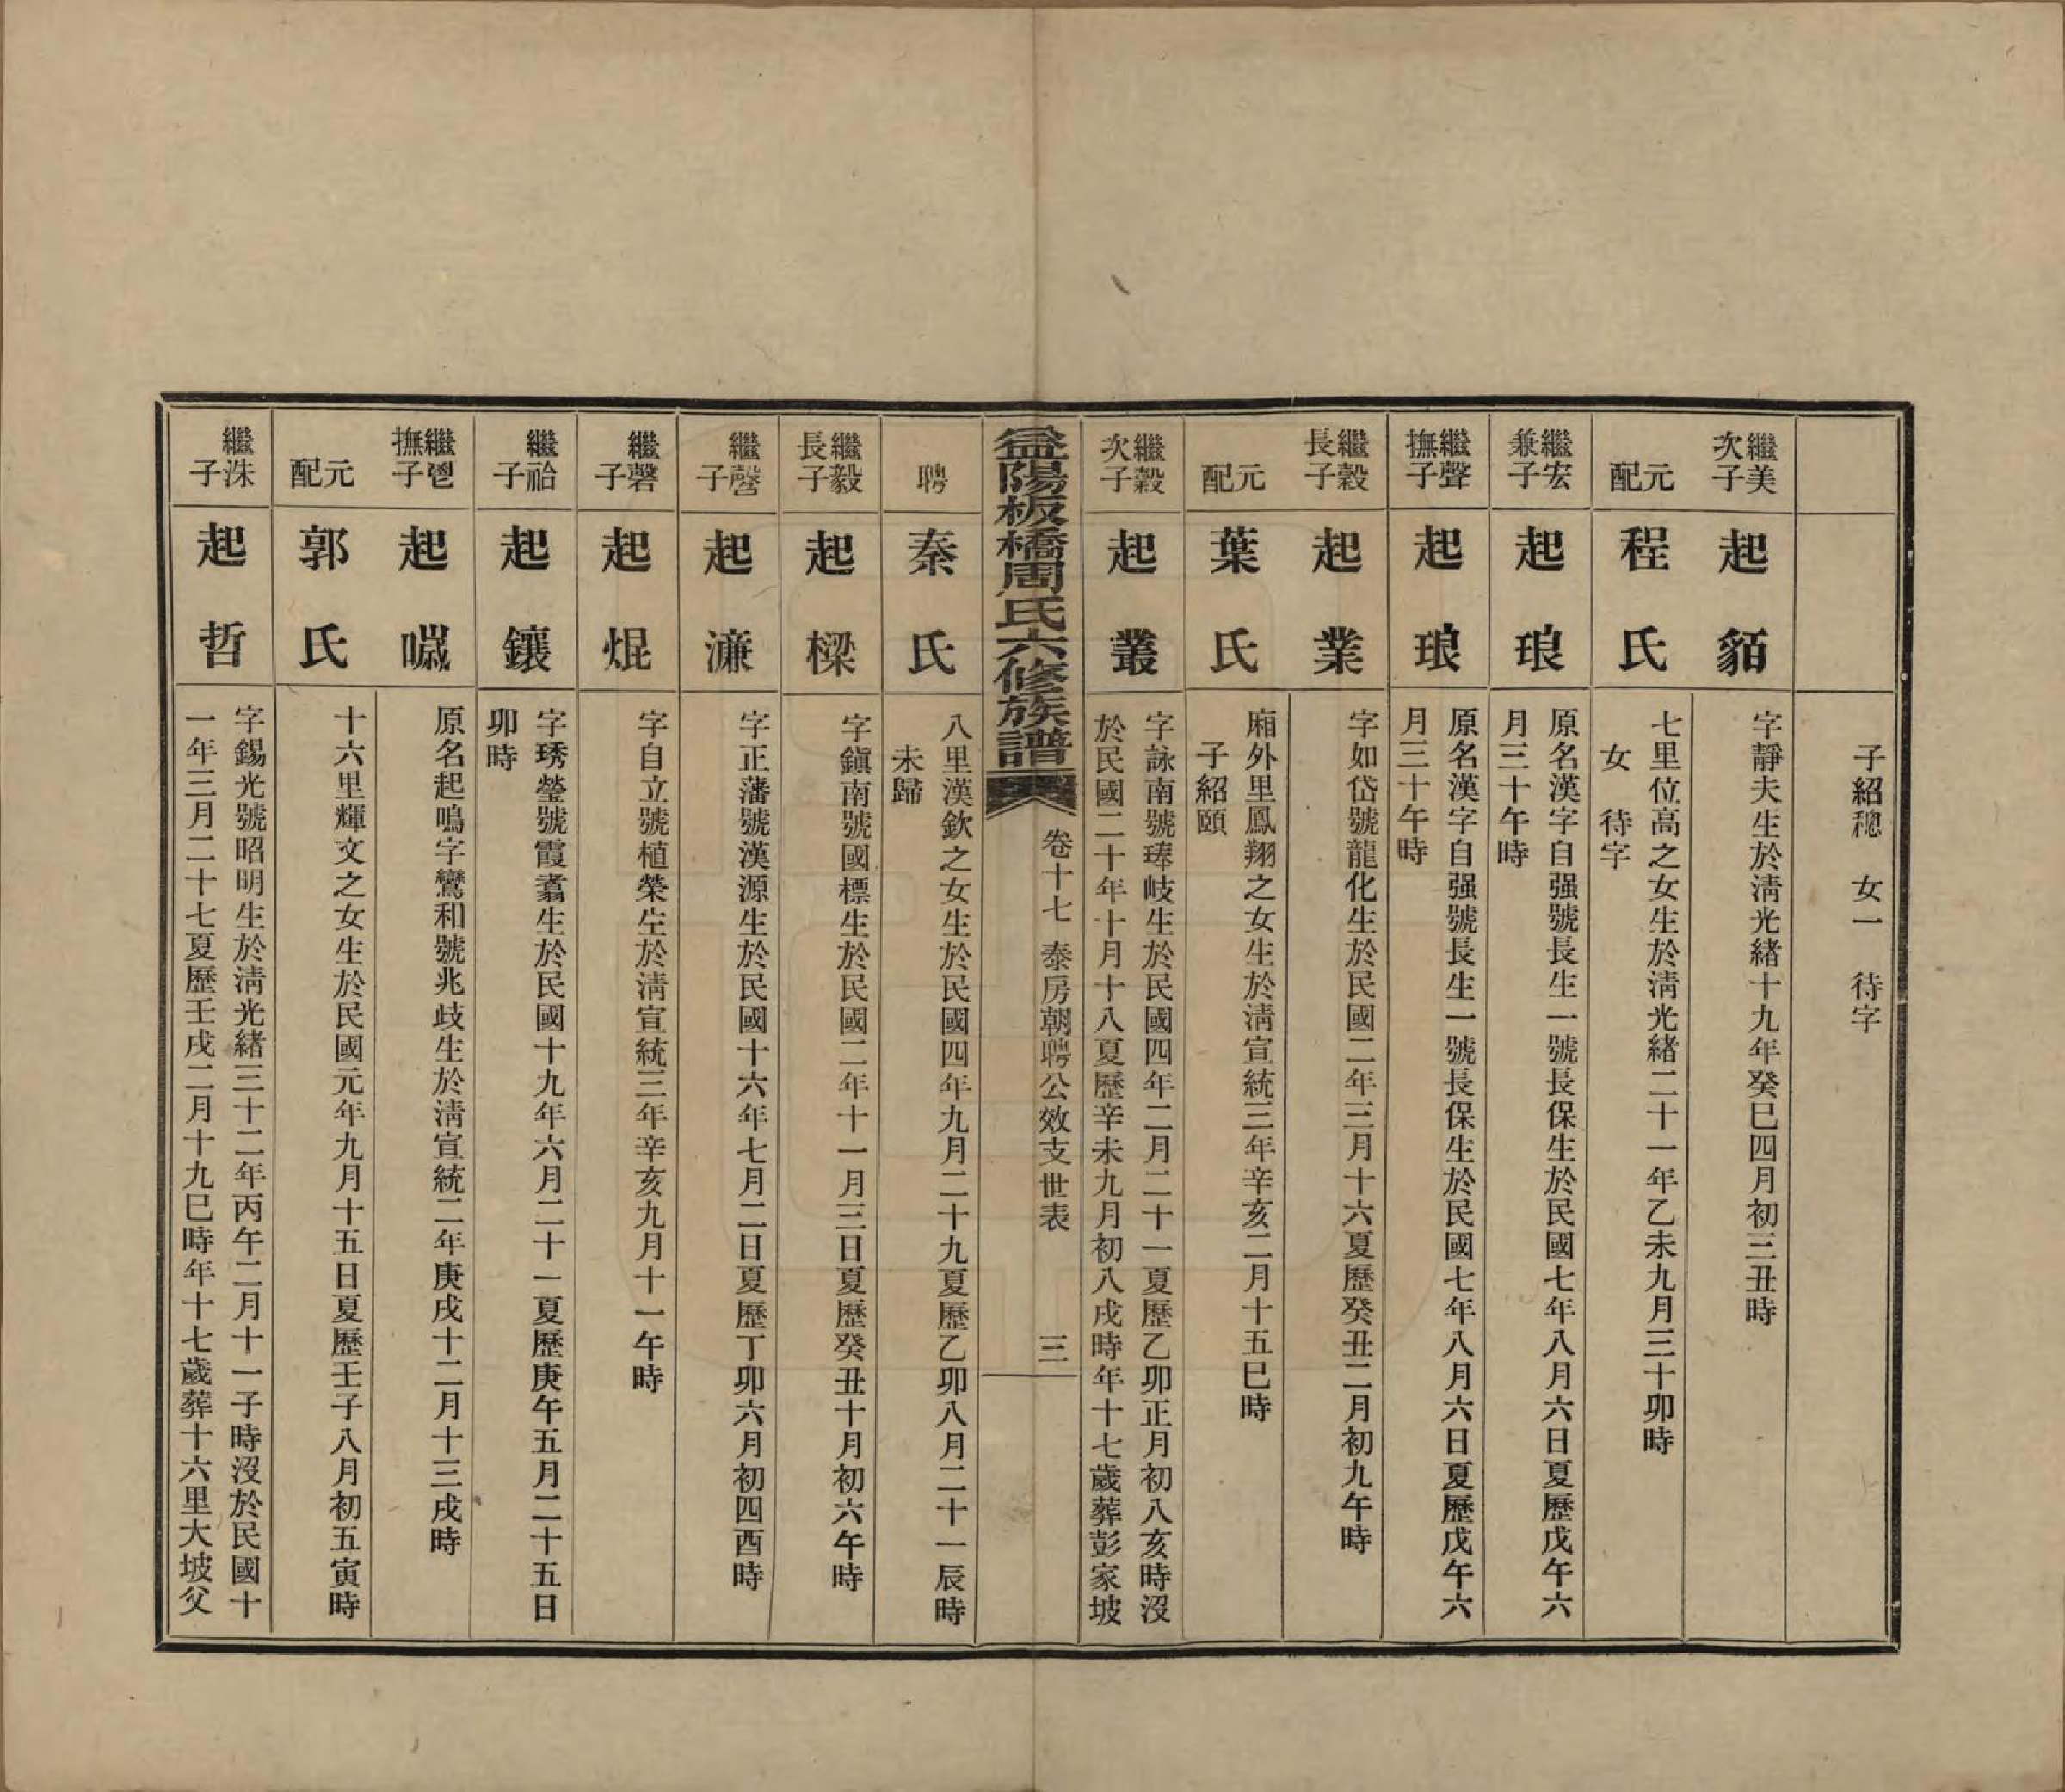 子紹穗　女一　待字
繼美
次子
起貊
字靜夫生於淸光緒十九年癸巳四月初三丑時
元配
程氏
七里位高之女生於淸光緒二十一年乙未九月三十卯時
女　待字
繼宏
兼子
起琅
原名漢字自强號長生一號長保生於民國七年八月六日夏歷戊午六
月三十午時
繼聲
撫子
起琅
原名漢字自强號長生一號長保生於民國七年八月六日夏歷戊午六
月三十午時
繼縠
長子
起業
字如岱號龍化生於民國二年三月十六夏歷癸丑二月初九午時
元配
葉氏
廂外里鳳翔之女生於淸宣統三年辛亥二月十五巳時
子紹頤
繼縠
次子
起叢
字詠南號琫岐生於民國四年二月二十一夏歷乙卯正月初八亥時沒
於民國二十年十月十八夏歷辛未九月初八戌時年十七歲葬彭家坡
益陽板橋周氏六修族譜
卷十七　泰房朝聘公效支世表
三
聘
秦氏
八里漢欽之女生於民國四年九月二十九夏歷乙卯八月二十一辰時
未歸
繼毅
長子
起樑
字鎭南號國標生於民國二年十一月三日夏歷癸丑十月初六午時
繼
子
起濂
字正藩號漢源生於民國十六年七月二日夏歷丁卯六月初四酉時
繼磬
子
起焜
字自立號植榮生於淸宣統三年辛亥九月十一午時
繼祫
子
起鑲
字琇瑩號霞翥生於民國十九年六月二十一夏歷庚午五月二十五日
卯時
繼
撫子
起
原名起鳴字鸞和號兆歧生於淸宣統二年庚戌十二月十三戌時
元配
郭氏
十六里輝文之女生於民國元年九月十五日夏歷壬子八月初五寅時
繼洙
子
起哲
字錫光號昭明生於淸光緒三十二年丙午二月十一子時沒於民國十
一年三月二十七夏歷壬戌二月十九巳時年十七歲葬十六里大坡父